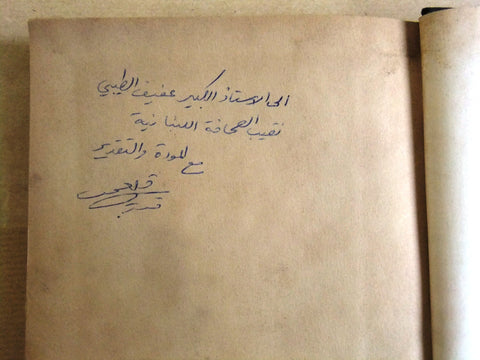 الى الاستاذ الكبير عفيف الطيبي
نقيب الصحافة اللبنانية
مع المودة والتقدير
قدري